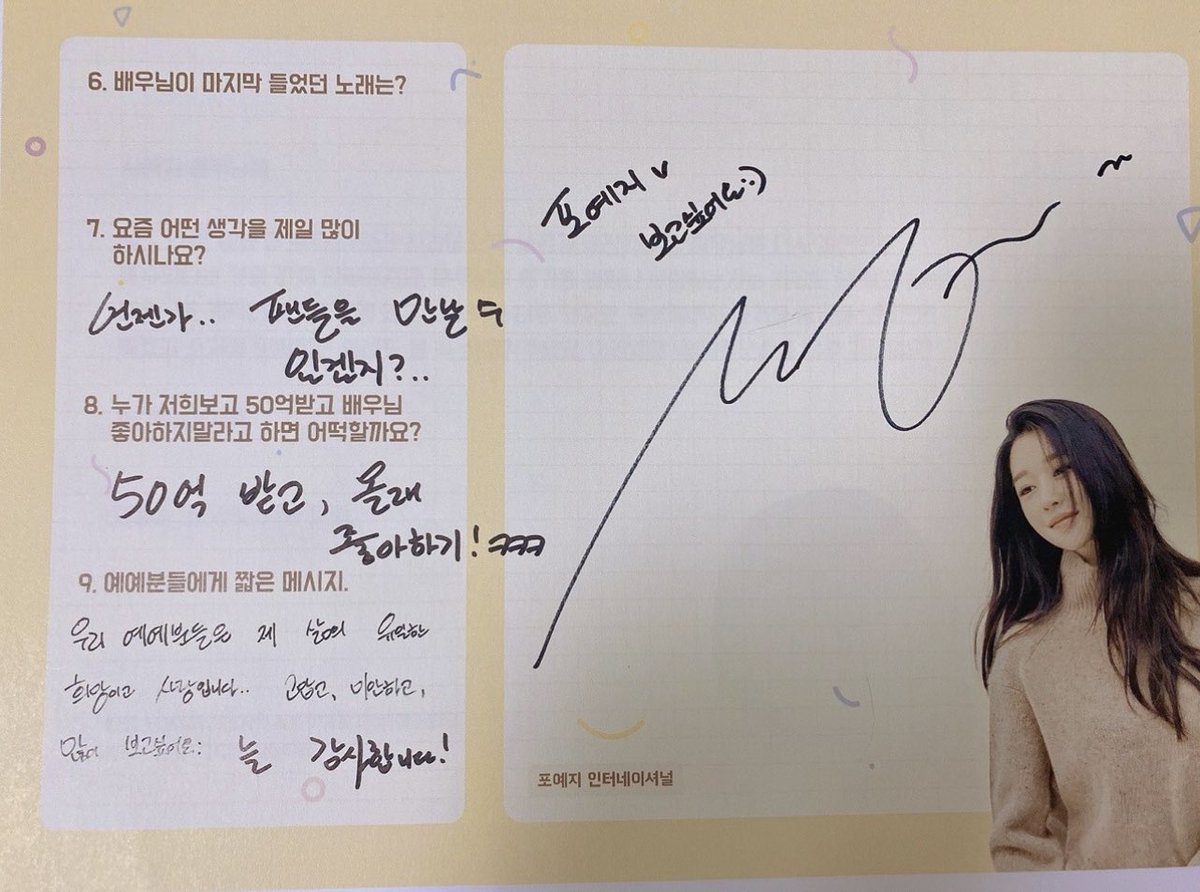 6. 배우님이 마지막 들었던 노래는?
7. 요즘 어떤 생각을 제일 많이
하시나요?
언젠가.. 팬들을 만날 수
있겠지?..
8. 누가 저희보고 50억받고 배우님
좋아하지말라고 하면 어떡할까요?
50억 받고, 몰래
좋아하기! ㅋㅋㅋ
9. 예예분들에게 짧은 메시지.
우리 예예분들은 제 삶의 유일한
희망이고 사랑입니다.. 고맙고, 미안하고,
많이 보고싶어요: 늘 감사합니다!
포예지 v
보고싶어요:)
포예지 인터네이셔널